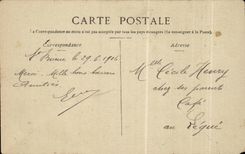 CARTE POSTALE
La Correspondance au recto n'est pas acceptée par tous les pays étrangers (Se renseigner à la Poste).
Correspondance
Adresse
St Brieuc le 29.6.1906
Merci. Mille bons baisers
Amitiés
Mlle Cécile Henry
chez ses parents
Café
au Légué